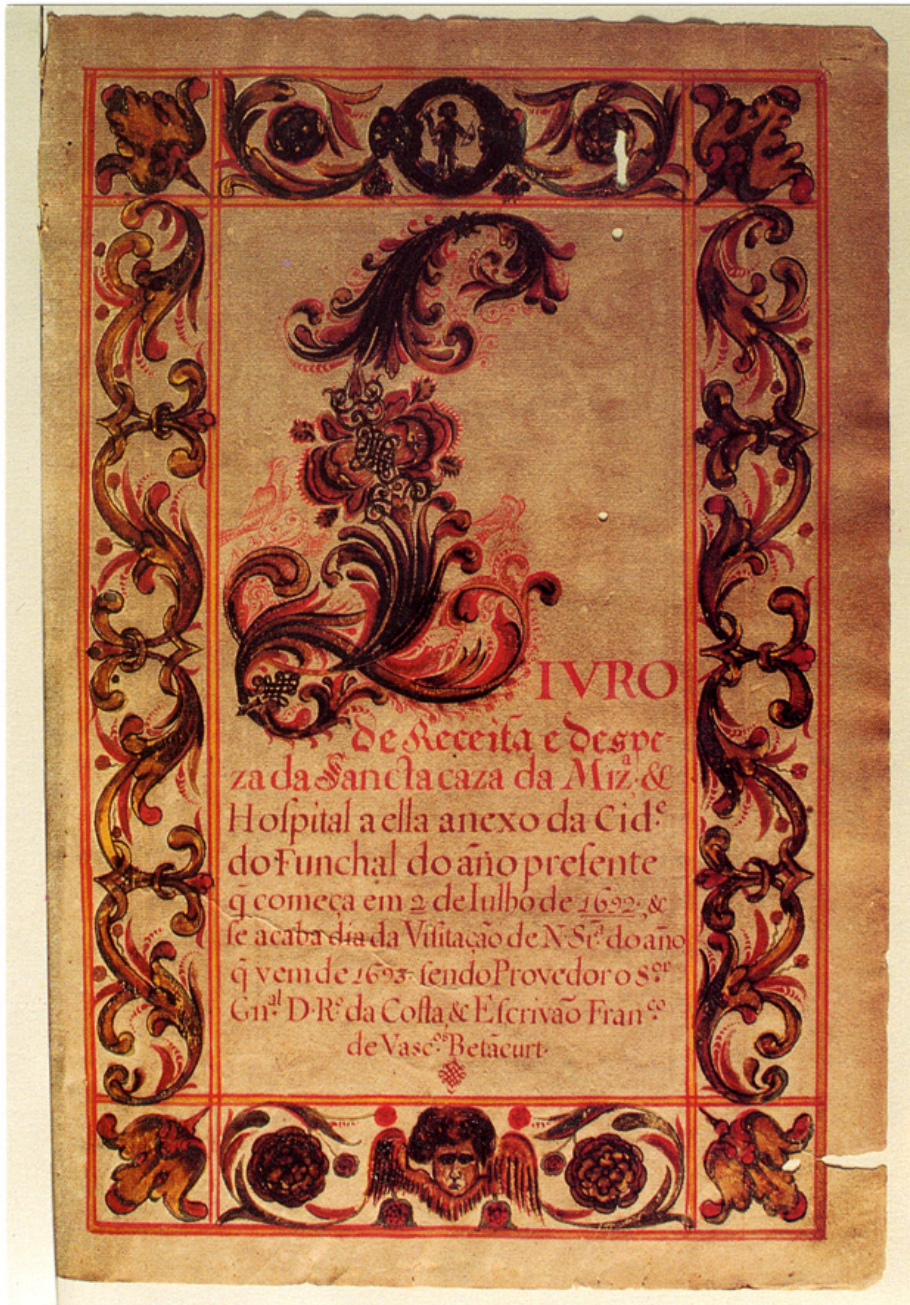 LIVRO
de Receita e despe-
za da Sancta caza da Miz.ª &
Hoſpital a ella anexo da Cid.ᵉ
do Funchal do año preſente
q̃ começa em 2 de Iulho de 1692. &
ſe acaba dia da Viſitação de N. Sr.ª do año
q̃ vem de 1693. ſendo Provedor o S.ᵒʳ
Gn.ᵃˡ D. R.ᵒ da Coſta, & Eſcrivão Fran.ᶜᵒ
de Vasc.ᵒˢ Betãcurt.